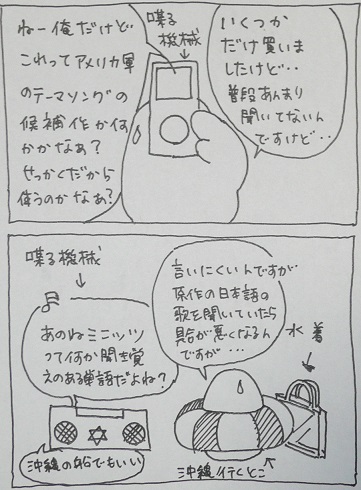 いくつか
だけ買いま
したけど・・
普段あんまり
聞いてないん
ですけど・・
喋る
機械
ねー俺だけど・・
これってアメリカ軍
のテーマソングの
候補作か何
かかなぁ?
せっかくだから
使うのかなぁ?
言いにくいんですが
原作の日本語の
歌を聞いていたら
具合が悪くなるん
ですが・・・
水着
喋る機械
あのねミニッツ
って何か聞き覚
えのある単語だよね?
沖縄の船でもいい
沖縄行くとこ